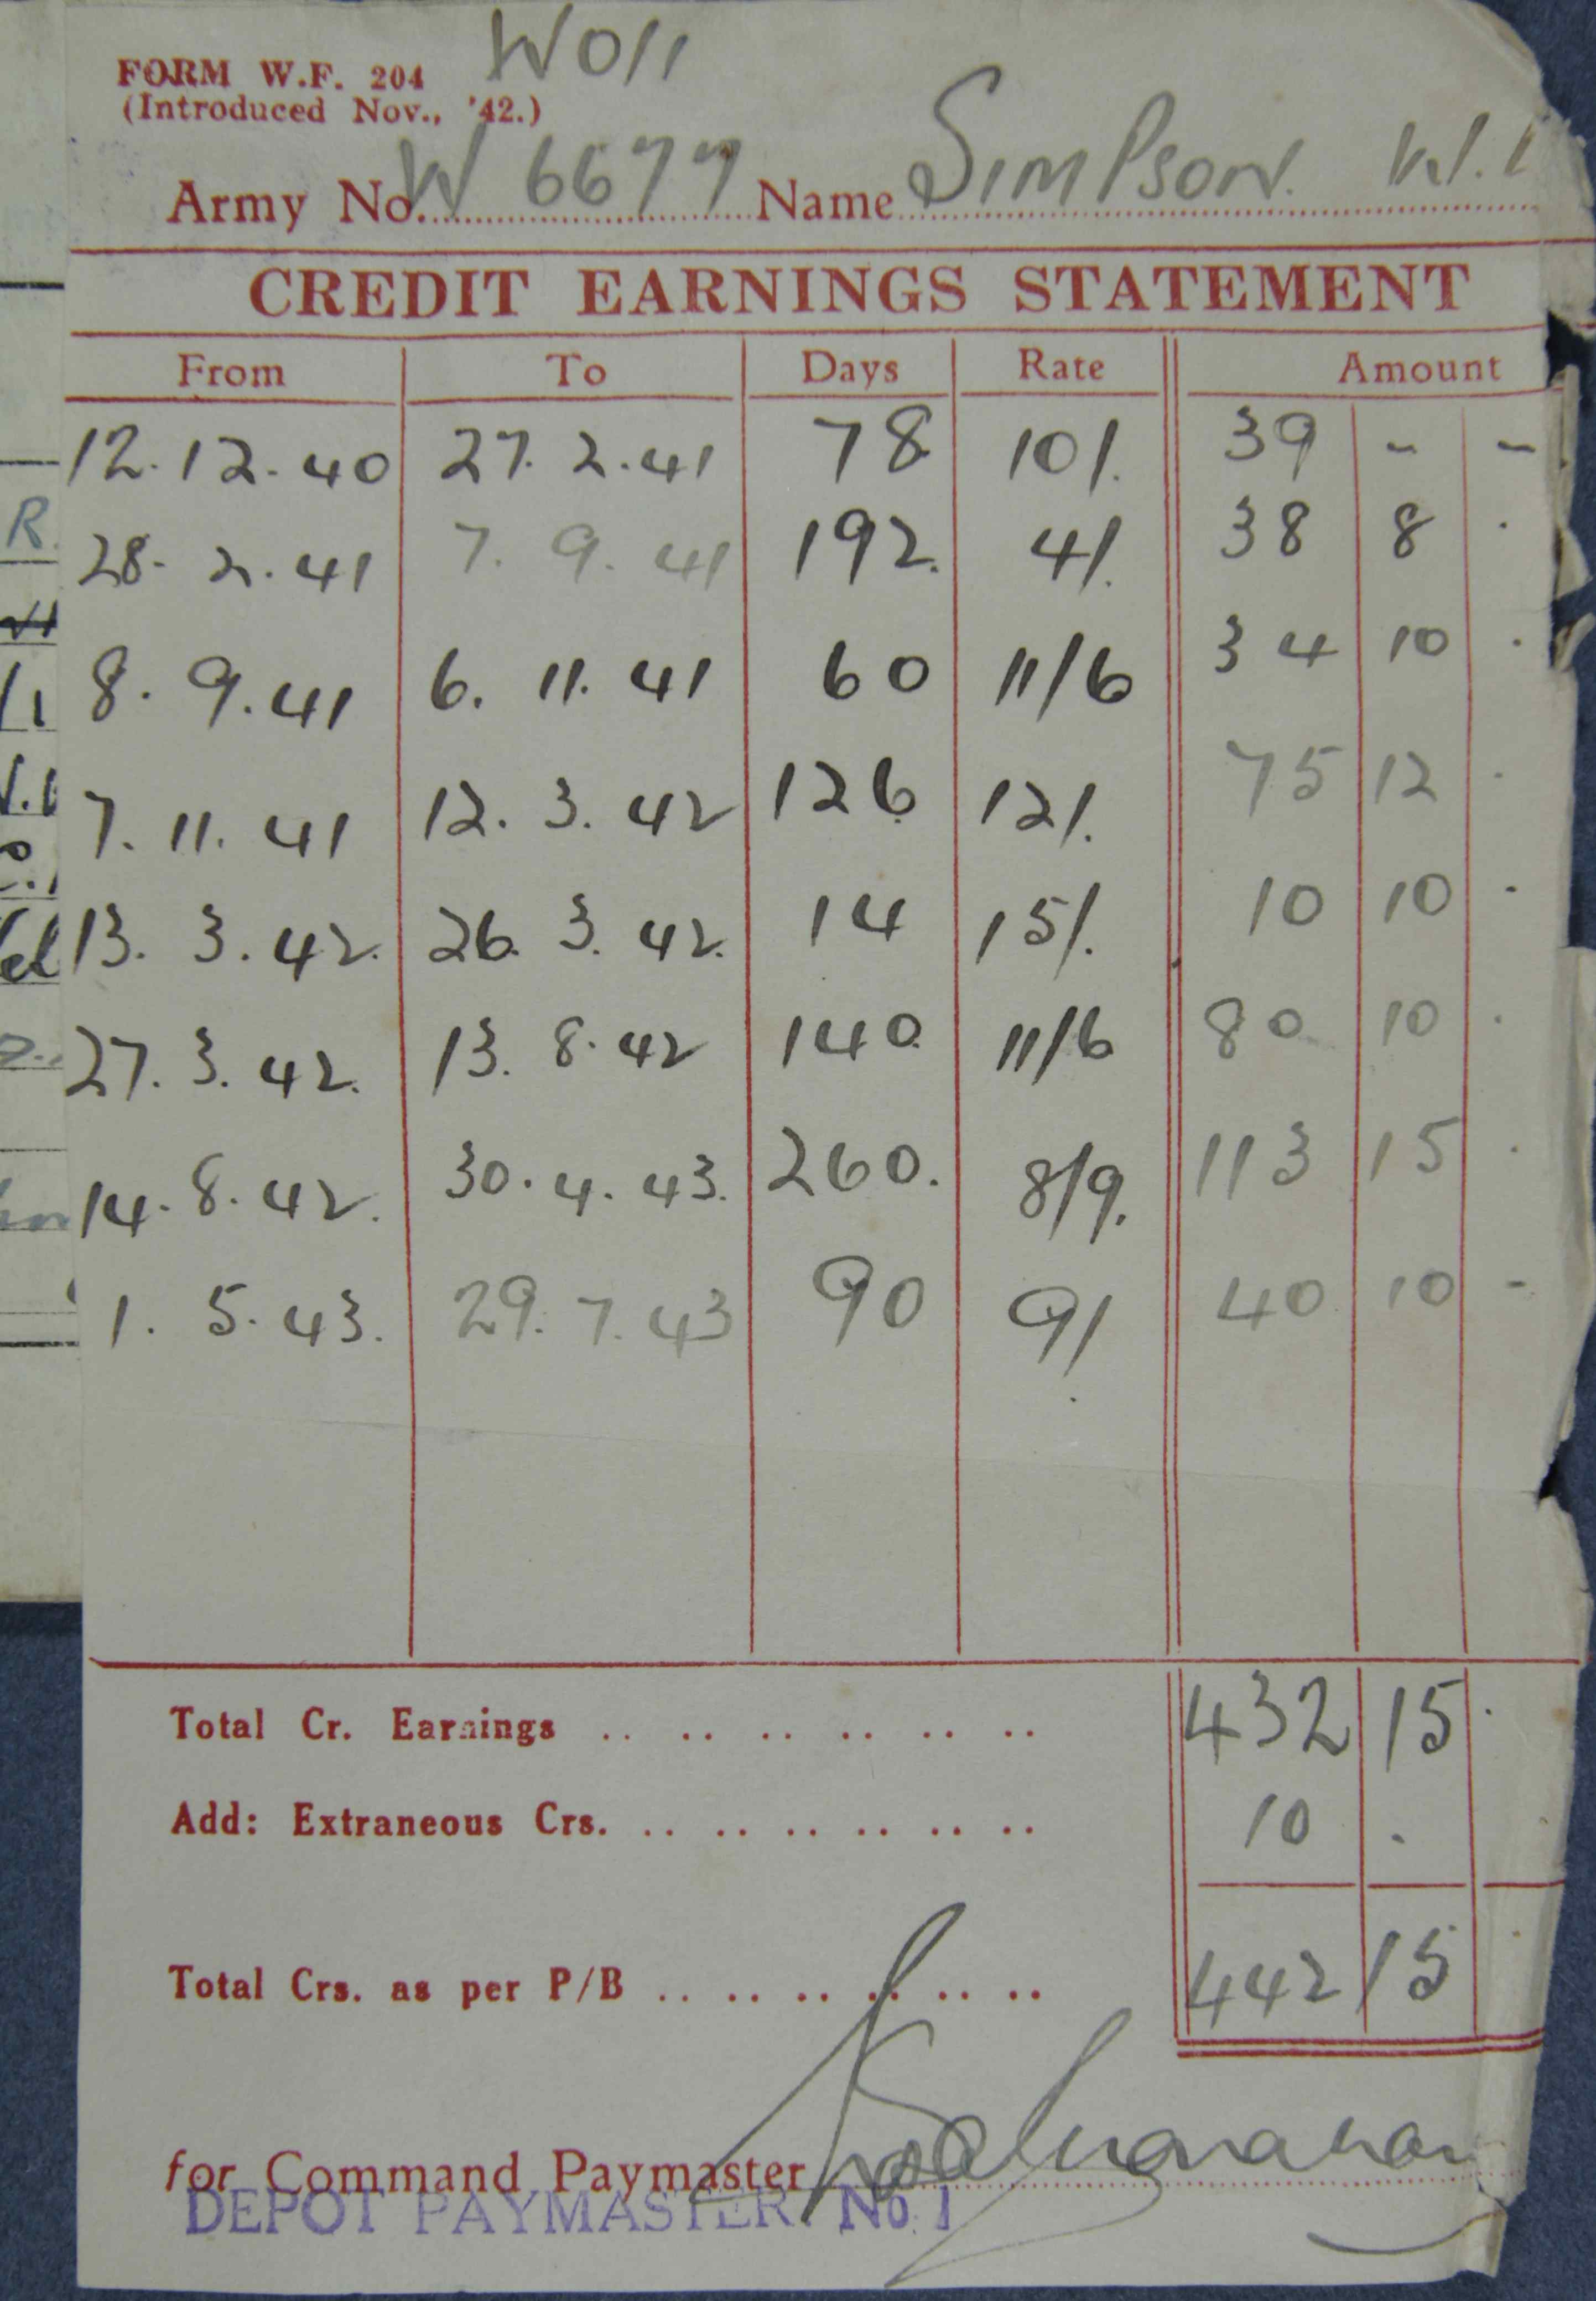 FORM W.F. 204 WO11
(Introduced Nov., '42.)
Army No. W 6677 Name SIMPSON. W.
CREDIT EARNINGS STATEMENT
From To Days Rate Amount
12.12.40 27.2.41 78 10/. 39 - -
28.2.41 7.9.41 192. 4/. 38 8 .
8.9.41 6.11.41 60 11/6 34 10 .
7.11.41 12.3.42 126 12/. 75 12 .
13.3.42. 26.3.42. 14 15/. 10 10 -
27.3.42. 13.8.42 140. 11/6 80 10 .
14.8.42. 30.4.43. 260. 8/9. 113 15 .
1.5.43. 29.7.43 90 9/ 40 10 -
Total Cr. Earnings .. .. .. .. .. .. 432 15 .
Add: Extraneous Crs. .. .. .. .. .. .. 10 .
Total Crs. as per P/B .. .. .. .. .. .. 442 15
for Command Paymaster
DEPOT PAYMASTER. No. 1